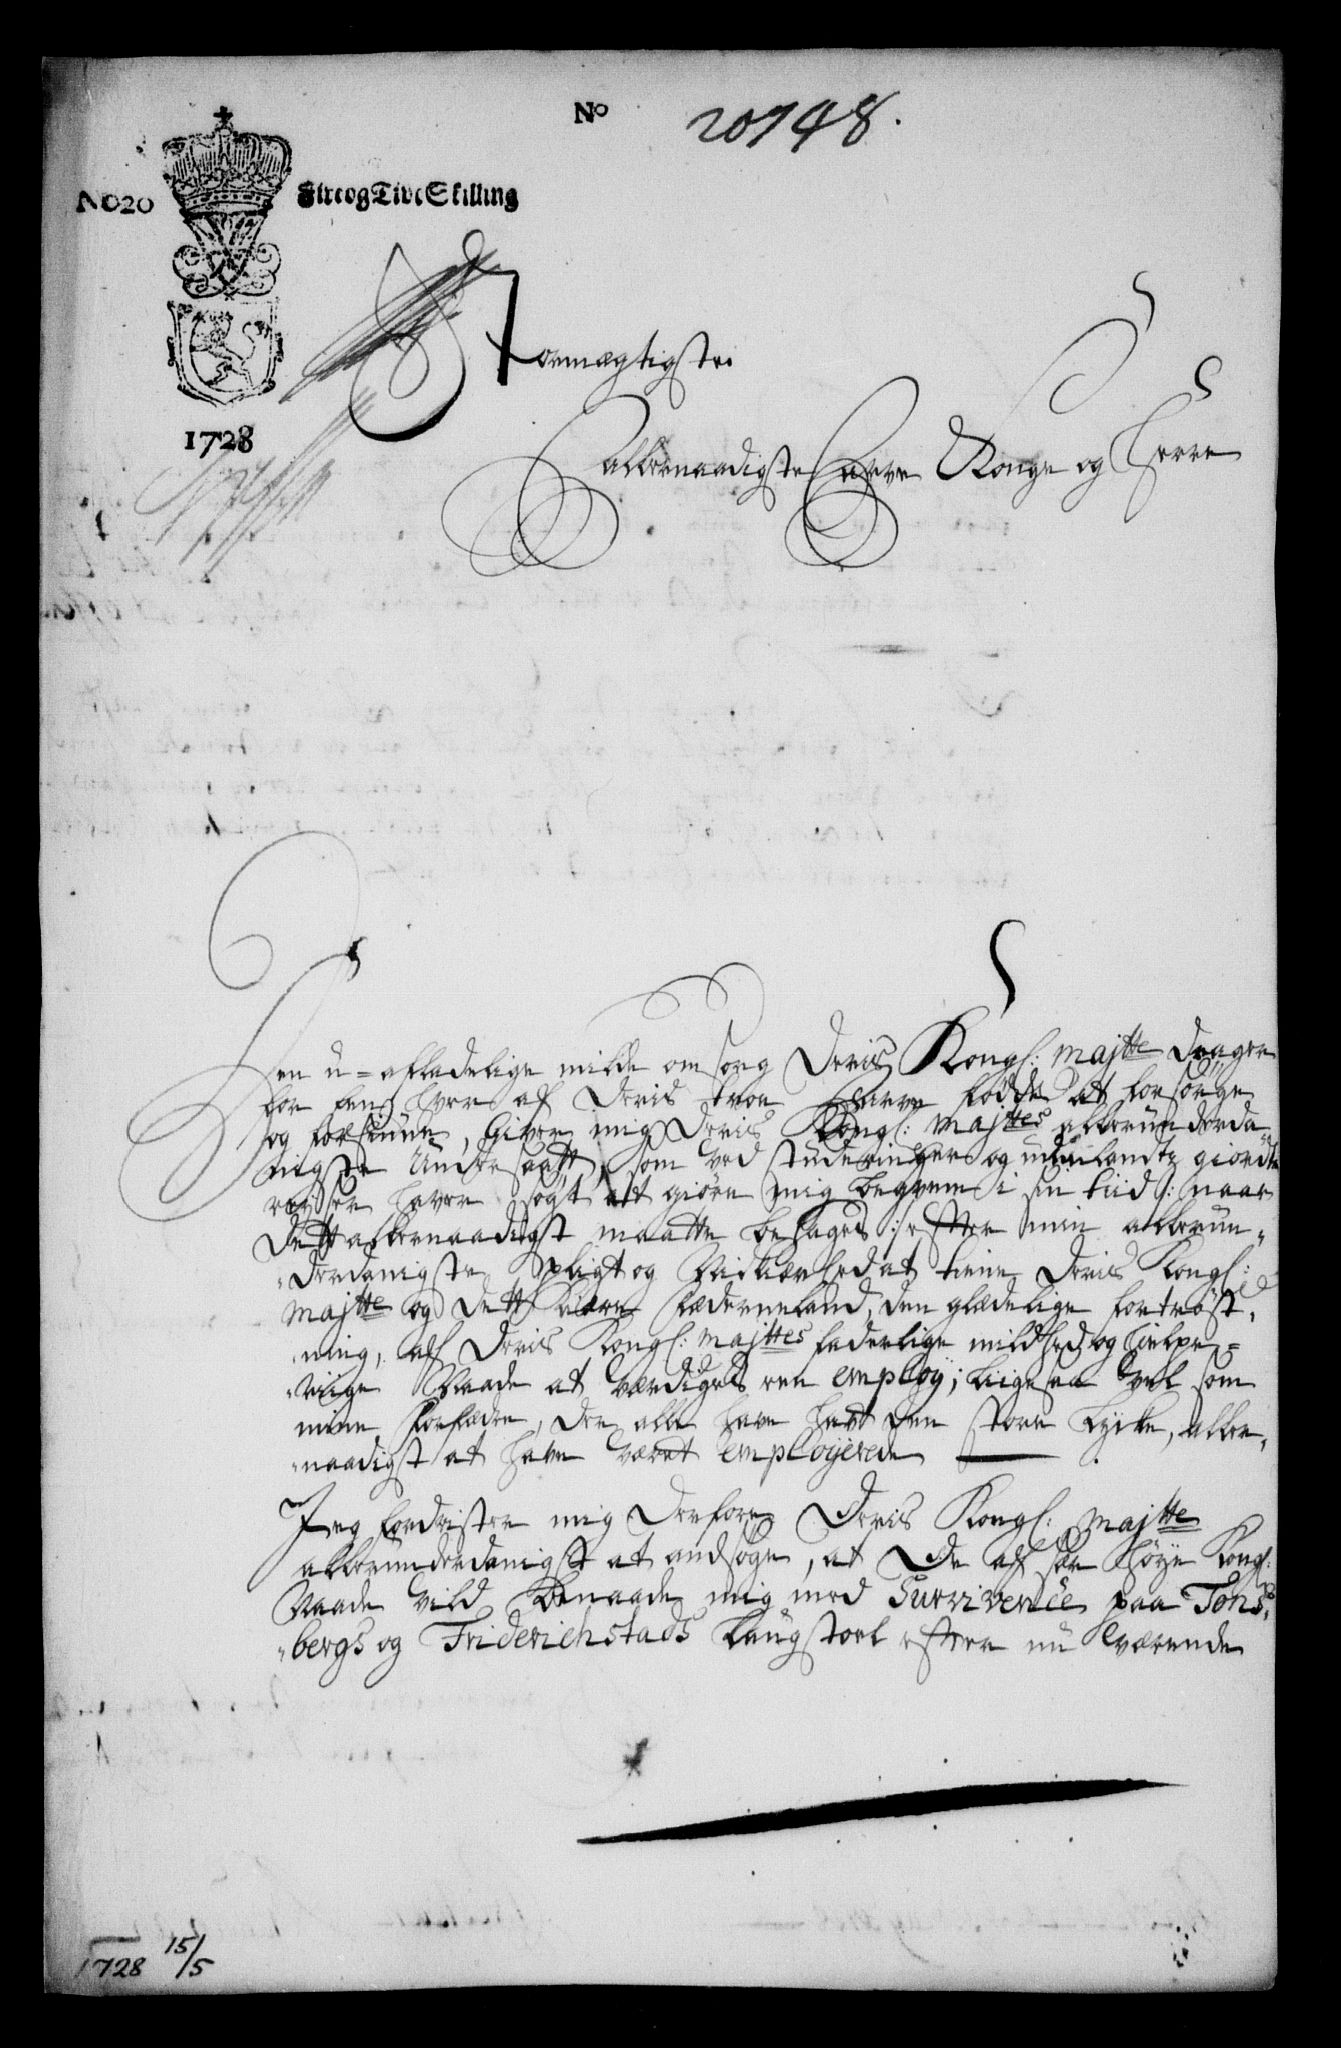 No 20748.
No 20 Fire og Tive Skilling
1728
Stormægtigste
allernaadigste Arve Konge og Herre
Den u-afladelige milde omsorg Deris Kongl: Majtte drager
for een hver af Deris troe Arve fødde at forsørge
og forsiune, Giver mig Deris Kongl: Majttes allerunderda
nigste Undersaatt, som ved studeringer og udenlandz giorde
reiser haver søgt at giøre mig beqvem i sin tiid /: naar
Dett allernaadigst maatte behages :/ efter min allerun-
-derdanigste pligt og Skildighed at tiene Deris Kongl:
Majtte og Dett kiære Fæderneland, den glædelige fortrøst-
-ning, aff Deris Kongl: Majttes faderlige mildhed og hielpe-
-riige Naade at værdiges een employ; liigesaa vel som
mine Forfædre, der alle have havt den store Lycke, aller-
-naadigst at have været employerede
Jeg fordrister mig derfore Deris Kongl: Majtte
allerunderdanigst at andsøge, at De aff sær høye Kongl:
Naade vild benaade mig med Survivence paa Tøns-
-bergs og Friderichstads Laugstoel efter nu værende
1728 15/5